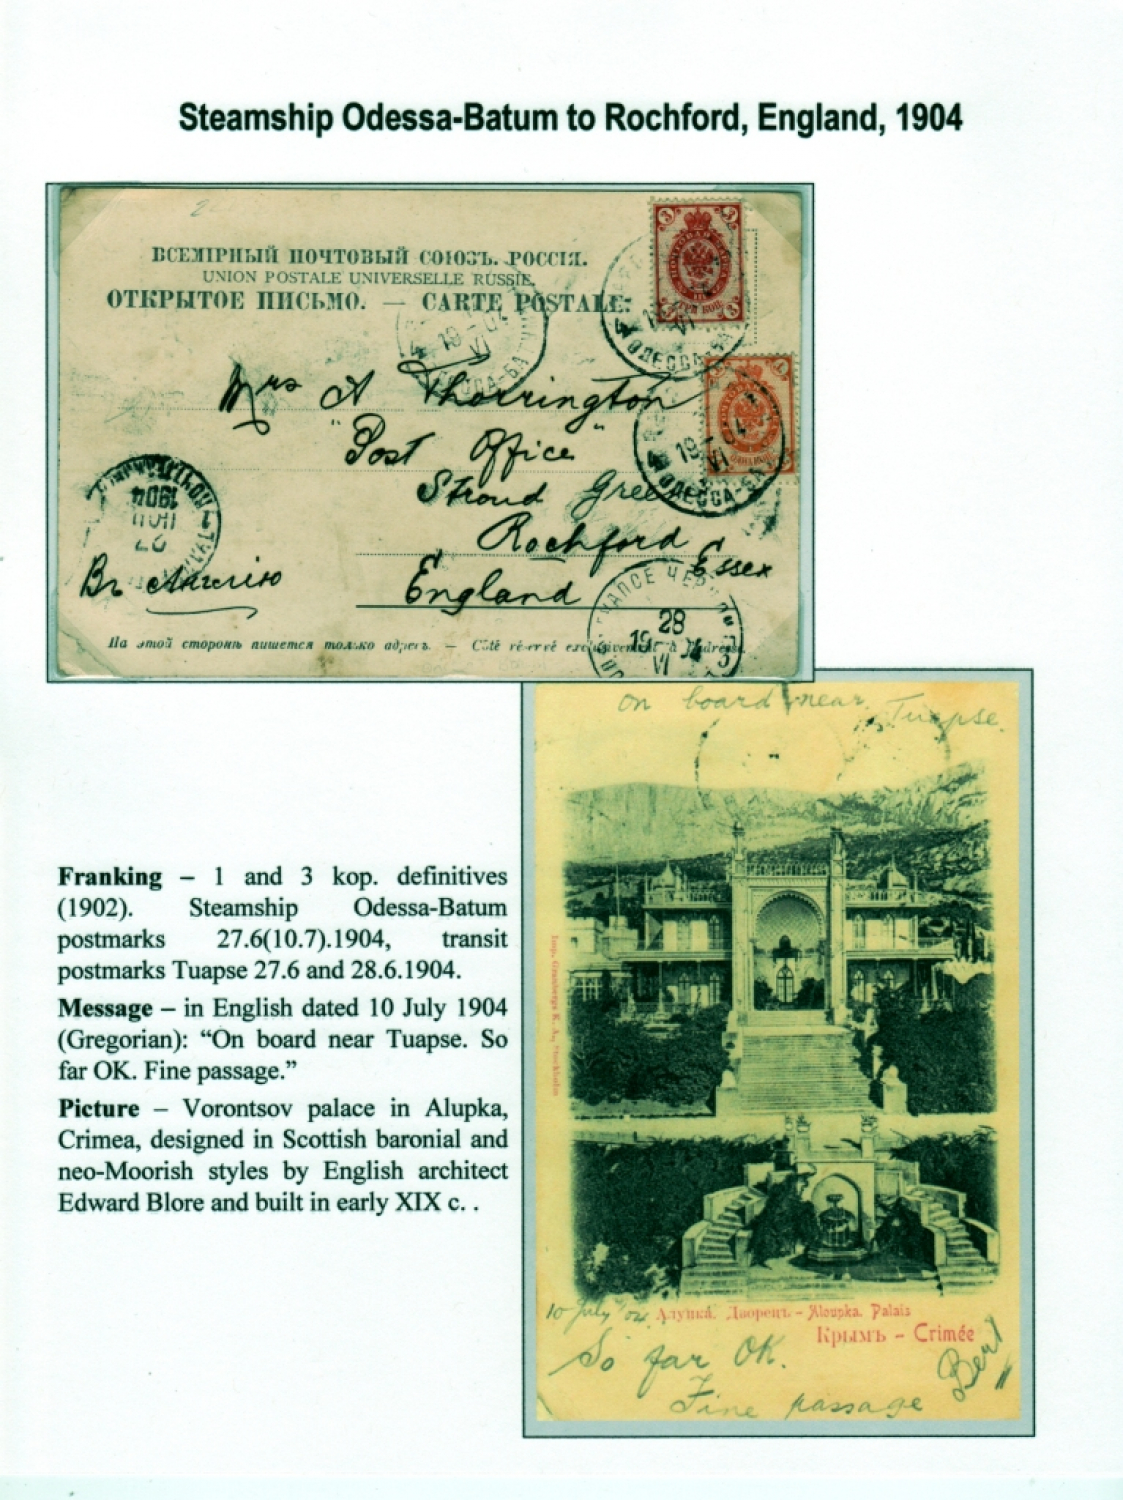 Steamship Odessa-Batum to Rochford, England, 1904
2
ВСЕМІРНЫЙ ПОЧТОВЫЙ СОЮЗЪ. РОССІЯ.
UNION POSTALE UNIVERSELLE RUSSIE.
ОТКРЫТОЕ ПИСЬМО. — CARTE POSTALE.
3 3
3 3
4 19 04
VI
ОДЕССА-БАТУМ
4 ОДЕССА-БА
VI
4 19 04
VI
ОДЕССА-БА
Mrs A Thorrington
"Post Office"
Stroud Green
Rochford
Essex
England
Въ Англію
1904
ІЮЛ
27
ТУАПСЕ ЧЕР
28
19 04
VI
На этой сторонѣ пишется только адресъ. — Côté réservé exclusivement à l'adresse.
On board near Tuapse.
Imp. Granbergs K. A., Stockholm
10 July '04
Алупка. Дворецъ - Aloupka. Palais
Крымъ - Crimée
So far OK.
Fine passage
Bert
Franking – 1 and 3 kop. definitives
(1902). Steamship Odessa-Batum
postmarks 27.6(10.7).1904, transit
postmarks Tuapse 27.6 and 28.6.1904.
Message – in English dated 10 July 1904
(Gregorian): “On board near Tuapse. So
far OK. Fine passage.”
Picture – Vorontsov palace in Alupka,
Crimea, designed in Scottish baronial and
neo-Moorish styles by English architect
Edward Blore and built in early XIX c. .